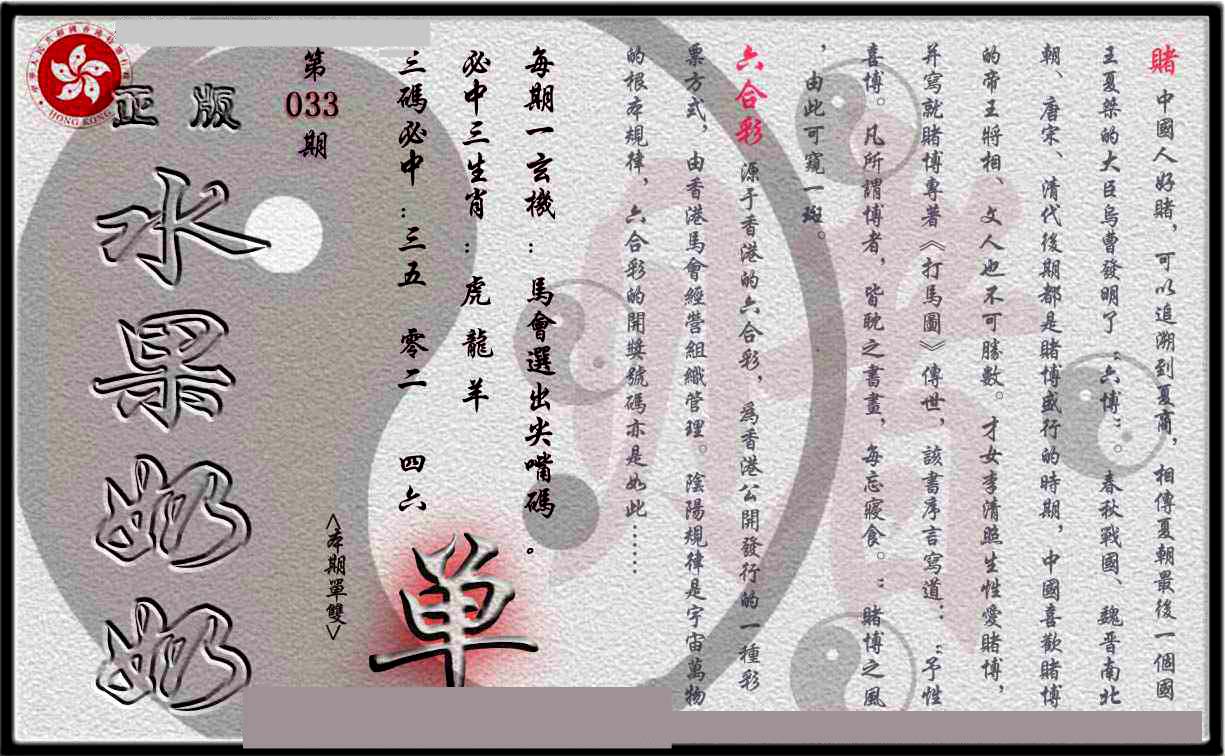 賭 中國人好賭，可以追溯到夏商，相傳夏朝最後一個國
王夏桀的大臣烏曹發明了“六博”。春秋戰國、魏晋南北
朝、唐宋、清代後期都是賭博盛行的時期，中國喜歡賭博
的帝王將相、文人也不可勝數。才女李清照生性愛賭博，
并寫就賭博專著《打馬圖》傳世，該書序言寫道：“予性
喜博。凡所謂博者，皆耽之書畫，每忘寢食。”賭博之風
，由此可窺一斑。
六合彩 源于香港的六合彩，為香港公開發行的一種彩
票方式，由香港馬會經營組織管理。陰陽規律是宇宙萬物
的根本規律，六合彩的開獎號碼亦是如此……
每期一玄機：馬會選出尖嘴碼。
必中三生肖：虎 龍 羊
三碼必中：三五 零二 四六
单
<本期單雙>
第
033
期
正版
水果奶奶
HONG KONG